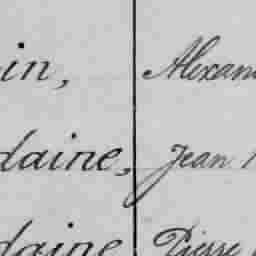 in, Alexan
daine, Jean
daine Pierre